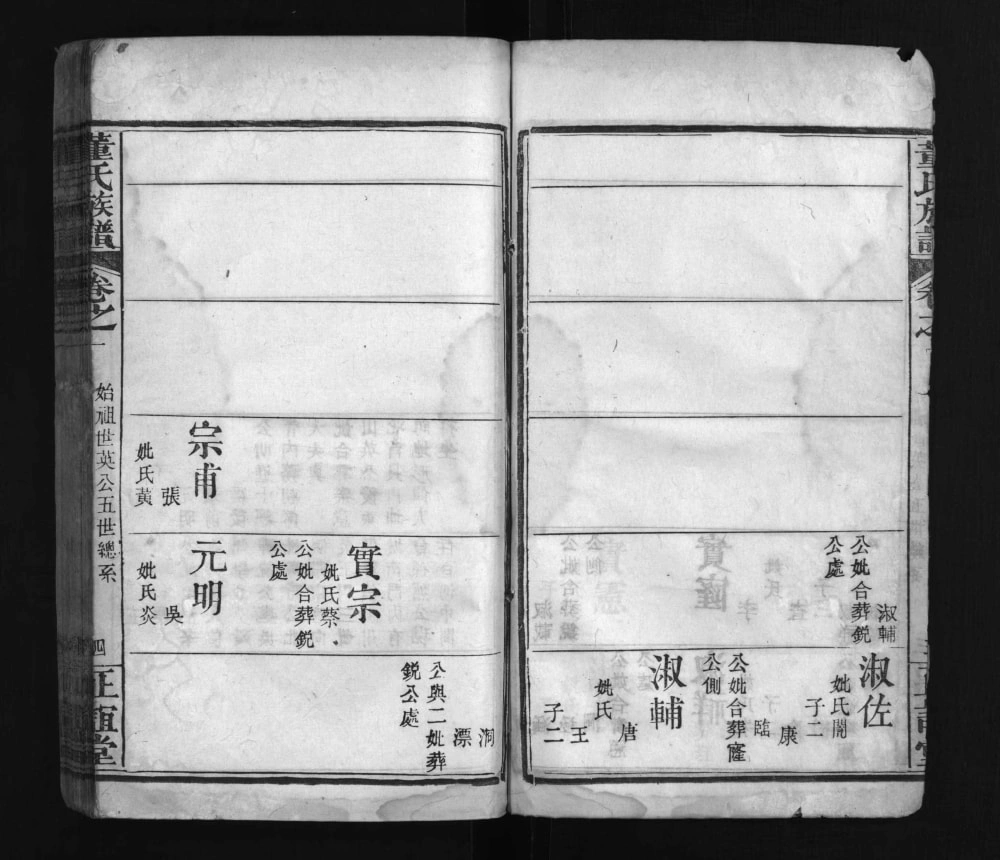 淑輔
公妣合葬銳
公處
淑佐
妣氏閙
子二
康
臨
公妣合葬窿
公側
淑輔
妣氏
唐
王
子二
洞
漂
公與二妣葬
銳公處
實宗
妣氏蔡
公妣合葬銳
公處
宗甫
張
妣氏黃
元明
吳
妣氏炎
董氏族譜
卷之一
始祖世英公五世總系
四
正誼堂